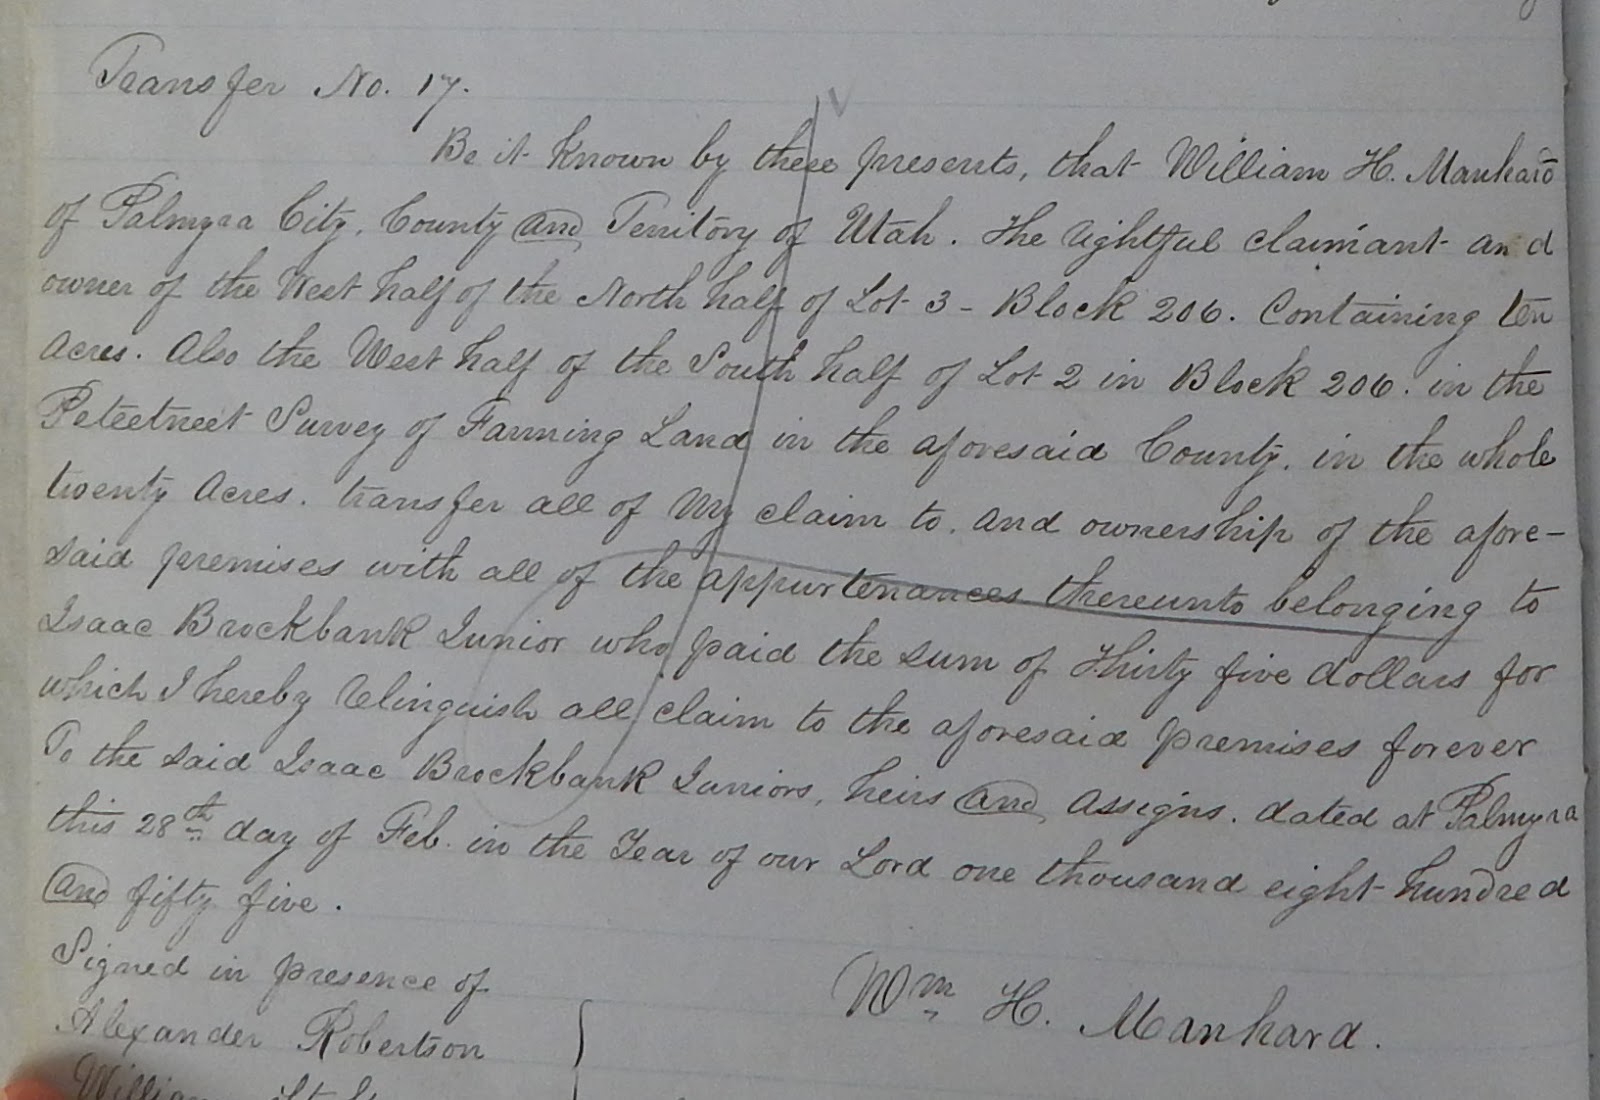 Transfer No. 17.
Be it known by these presents, that William H. Manhard
of Palmyra City, County and Territory of Utah. The rightful claimant and
owner of the West half of the North half of Lot 3 - Block 206. Containing ten
Acres. Also the West half of the South half of Lot 2 in Block 206. in the
Peteetneet Survey of Farming Land in the aforesaid County, in the whole
twenty Acres. transfer all of my claim to, and ownership of the afore-
said premises with all of the appurtenances thereunto belonging to
Isaac Brockbank Junior who paid the sum of Thirty five dollars for
which I hereby relinquish all claim to the aforesaid premises forever
To the said Isaac Brockbank Juniors, heirs and Assigns. dated at Palmyra
this 28th day of Feb. in the Year of our Lord one thousand eight hundred
and fifty five.
Signed in presence of
Wm H. Manhard.
Alexander Robertson
William